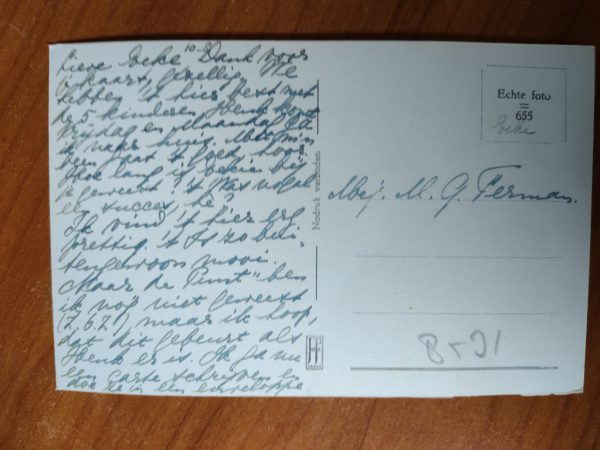 Lieve Eeke Dank voor
je kaart, gezellig. We
hebben 't hier best met
de 5 kinderen. Henk komt
Vrijdag en Maandag
ik naar huis. Met mijn
been gaat 't goed, hoor
Hoe lang is bij
je geweest? 't Was nogal
een succes, hè?
Ik vind 't hier erg
prettig. 't Is zo bui-
tengewoon mooi.
Naar de Punt" ben
ik nog niet geweest
maar ik hoop,
dat dit gebeurt als
Henk er is. Ik ga nu
een carte schrijven en
doe ze in een enveloppe
Nadruk verboden
Echte foto
=
655
Eeke
Mej. M. G. Ferman.
B-51